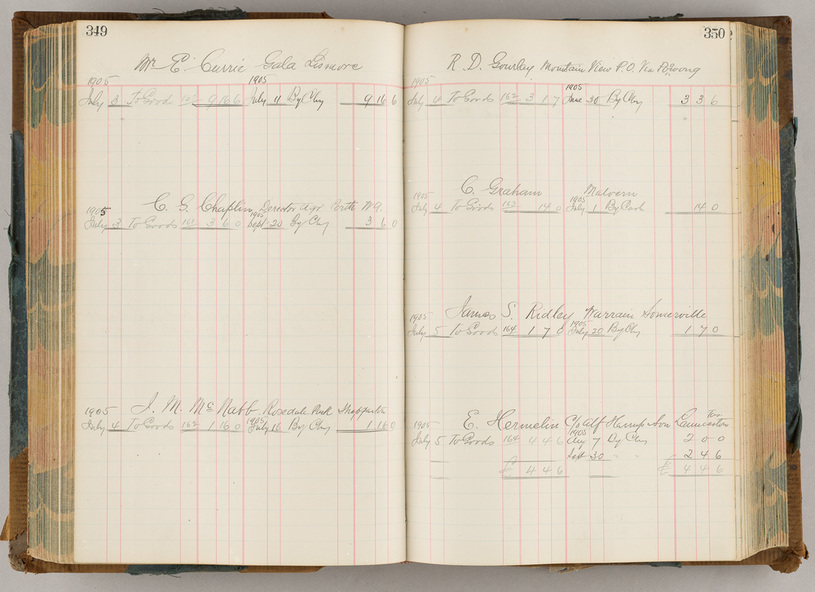 349
Mr E Currie Gala Lismore
1905 1905
July 3 To Goods 162 9 16 6 July 11 By Chq 9 16 6
C. G. Chaplin Perth WA
1905 1905
July 3 To Goods 162 3 6 0 Sept 20 By Chq 3 6 0
J. M. McNabb Rosedale Park Shepparton
1905 1905
July 4 To Goods 162 1 16 0 July 15 By Chq 1 16 0
350
R. D. Gourley Mountain View P.O. Via
1905 1905
July 4 To Goods 162 3 1 7 June 30 By Chq 3 3 6
C. Graham Malvern
1905 1905
July 4 To Goods 163 14 0 July 1 By Cash 14 0
James S. Ridley Warrain Somerville
1905 1905
July 5 To Goods 164 1 7 0 July 20 By Chq 1 7 0
E. Hermelin C/o Alf Hampson Launceston Tas
1905 1905
July 5 To Goods 164 4 4 6 Aug 7 By Chq 2 0 0
Sept 30 " " 2 4 6
£ 4 4 6 £ 4 4 6